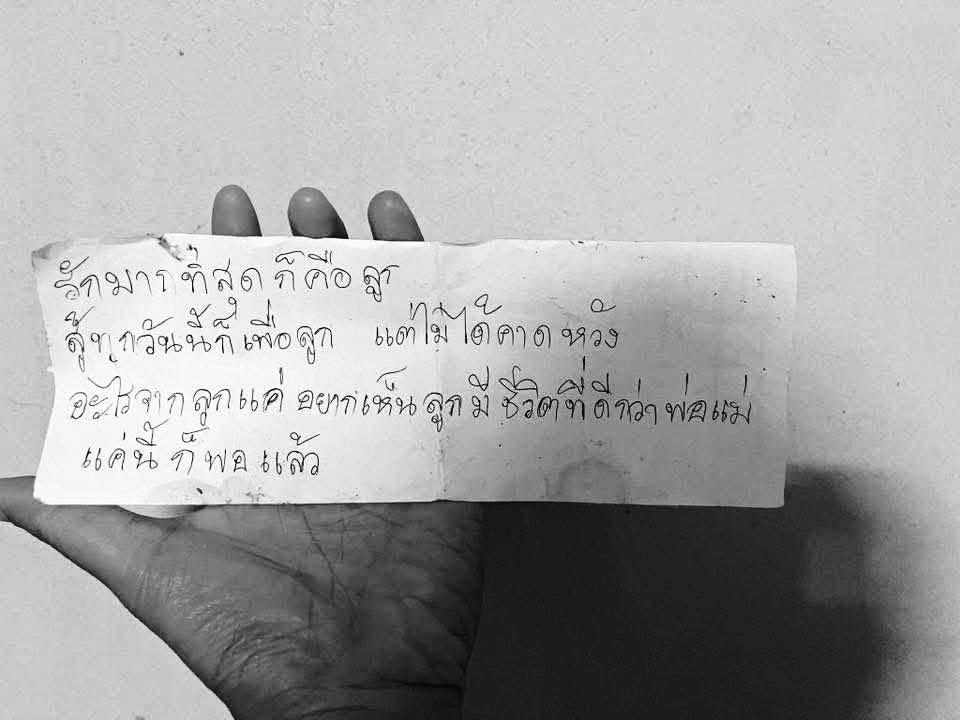 รักมากที่สุด ก็คือ ลูก
สู้ทุกวันนี้ก็เพื่อลูก แต่ไม่ได้คาดหวัง
อะไรจากลูกแค่ อยากเห็นลูกมี ชีวิตที่ดีกว่าพ่อแม่
แค่นี้ ก็พอ แล้ว